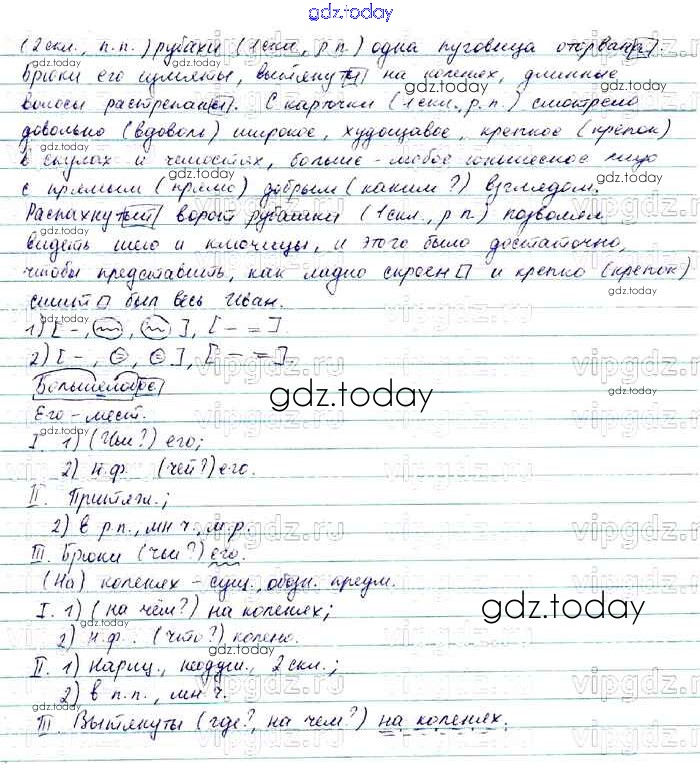 gdz.today
(2 скл., п.п.) рубахи (1 скл., р.п.) одна пуговица оторвана.
Брюки его измяты, вытянуты на коленях, длинные
волосы растрепаны. С карточки (1 скл., р.п.) смотрело
довольно (вдоволь) широкое, худощавое, крепкое (крепок)
в скулах и челюстях, больше-лобое юношеское лицо
с прямым (прямо) добрым (каким?) взглядом.
Распахнутый ворот рубашки (1 скл., р.п.) позволял
видеть шею и ключицы, и этого было достаточно,
чтобы представить, как ладно скроен и крепко (крепок)
сшит был весь Иван.
1) [ – , , ], [ – = ].
2) [ – , , ], [ – = ].
Большелобое
Его – мест.
I. 1) (Чьи?) его;
2) н.ф. (чей?) его.
II. Притяж.;
2) в р.п., мн.ч., м.р.
III. Брюки (чьи?) его.
(На) коленях – сущ., обозн. предм.
I. 1) (на чём?) на коленях;
2) н.ф. (что?) колено.
II. 1) Нариц., неодуш., 2 скл.;
2) в п.п., мн.ч.
III. Вытянуты (где?, на чем?) на коленях.
gdz.today
gdz.today
vipgdz.ru